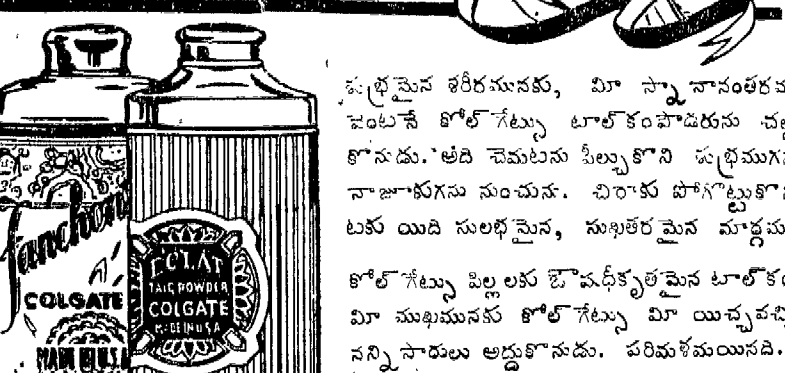 Fanchon
COLGATE
MADE IN U.S.A
ECLAT
TALC POWDER
COLGATE
MADE IN U.S.A
శుభ్రమైన శరీరమునకు, మీ స్నానానంతరమ
వెంటనే కోల్‌గేట్సు టాల్‌కంపౌడరును చల్ల
కొనుడు. అది చెమటను పీల్చుకొని శుభ్రముగన
నాజూకుగను నుంచును. చిరాకు పోగొట్టుకొన
టకు యిది సులభమైన, సుఖతరమైన మార్గమ
కోల్‌గేట్సు పిల్లలకు ఔషధీకృతమైన టాల్‌కం
మీ ముఖమునకు కోల్‌గేట్సు మీ యిచ్చవచ్చి
నన్ని సారులు అద్దుకొనుడు. పరిమళమయినది.